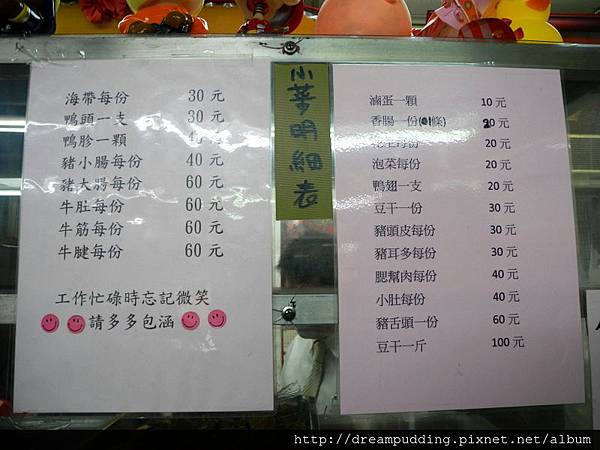 海帶每份 30 元
鴨頭一支 30 元
鴨胗一顆 元
豬小腸每份 40 元
豬大腸每份 60 元
牛肚每份 60 元
牛筋每份 60 元
牛腱每份 60 元
工作忙碌時忘記微笑
請多多包涵
小菜明細表
滷蛋一顆 10 元
香腸一份(條) 20 元
每份 20 元
泡菜每份 20 元
鴨翅一支 20 元
豆干一份 30 元
豬頭皮每份 30 元
豬耳多每份 30 元
腮幫肉每份 40 元
小肚每份 40 元
豬舌頭一份 60 元
豆干一斤 100 元
http://dreampudding.pixnet.net/album